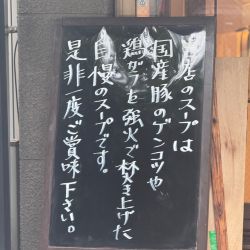 当店のスープは
国産豚のゲンコツや
鶏ガラを強火で焚き上げた
自慢のスープです。
是非一度ご賞味下さい。